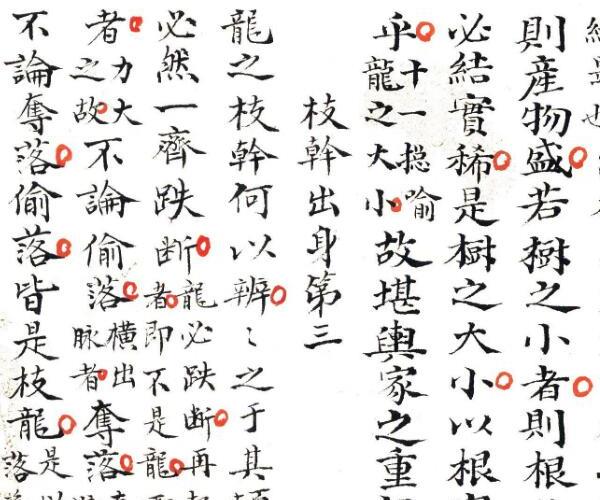 是也
則産物盛若樹之小者則根
必結實稀是樹之大小以根
乎十一摠喻龍之大小故堪輿家之重
枝幹出身第三
龍之枝幹何以辨〻之于其
必然一齊跌断龍必跌断再者即不是龍
者力大之故不論偷落橫出脉者奪落
不論奪落偷落皆是枝龍是落